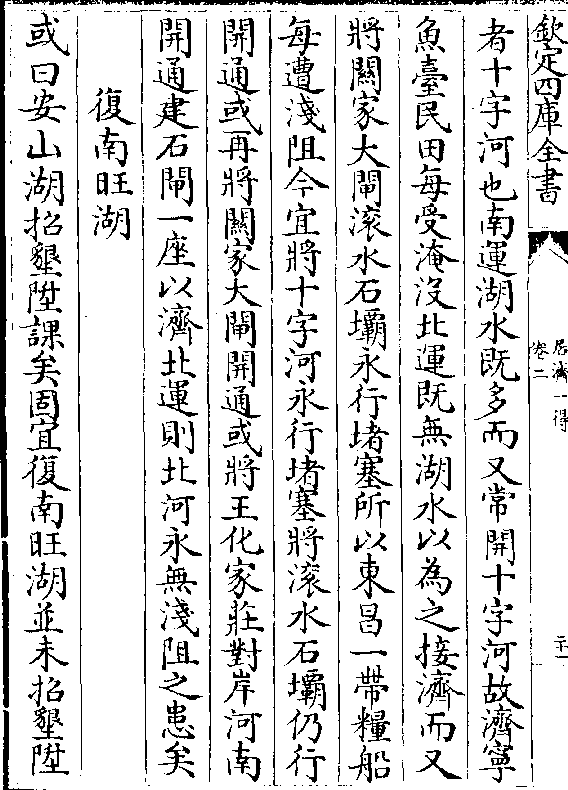 欽定四庫全書
居濟一得
卷二
二十一
者十字河也南運湖水既多而又常開十字河故濟寧
魚臺民田每受淹沒北運既無湖水以為之接濟而又
將闗家大閘滚水石壩永行堵塞所以東昌一帶糧船
每遭淺阻今宜將十字河永行堵塞將滚水石壩仍行
開通或再將闗家大閘開通或將王化家莊對岸河南
開通建石閘一座以濟北運則北河永無淺阻之患矣
復南旺湖
或曰安山湖招墾陞課矣固宜復南旺湖並未招墾陞